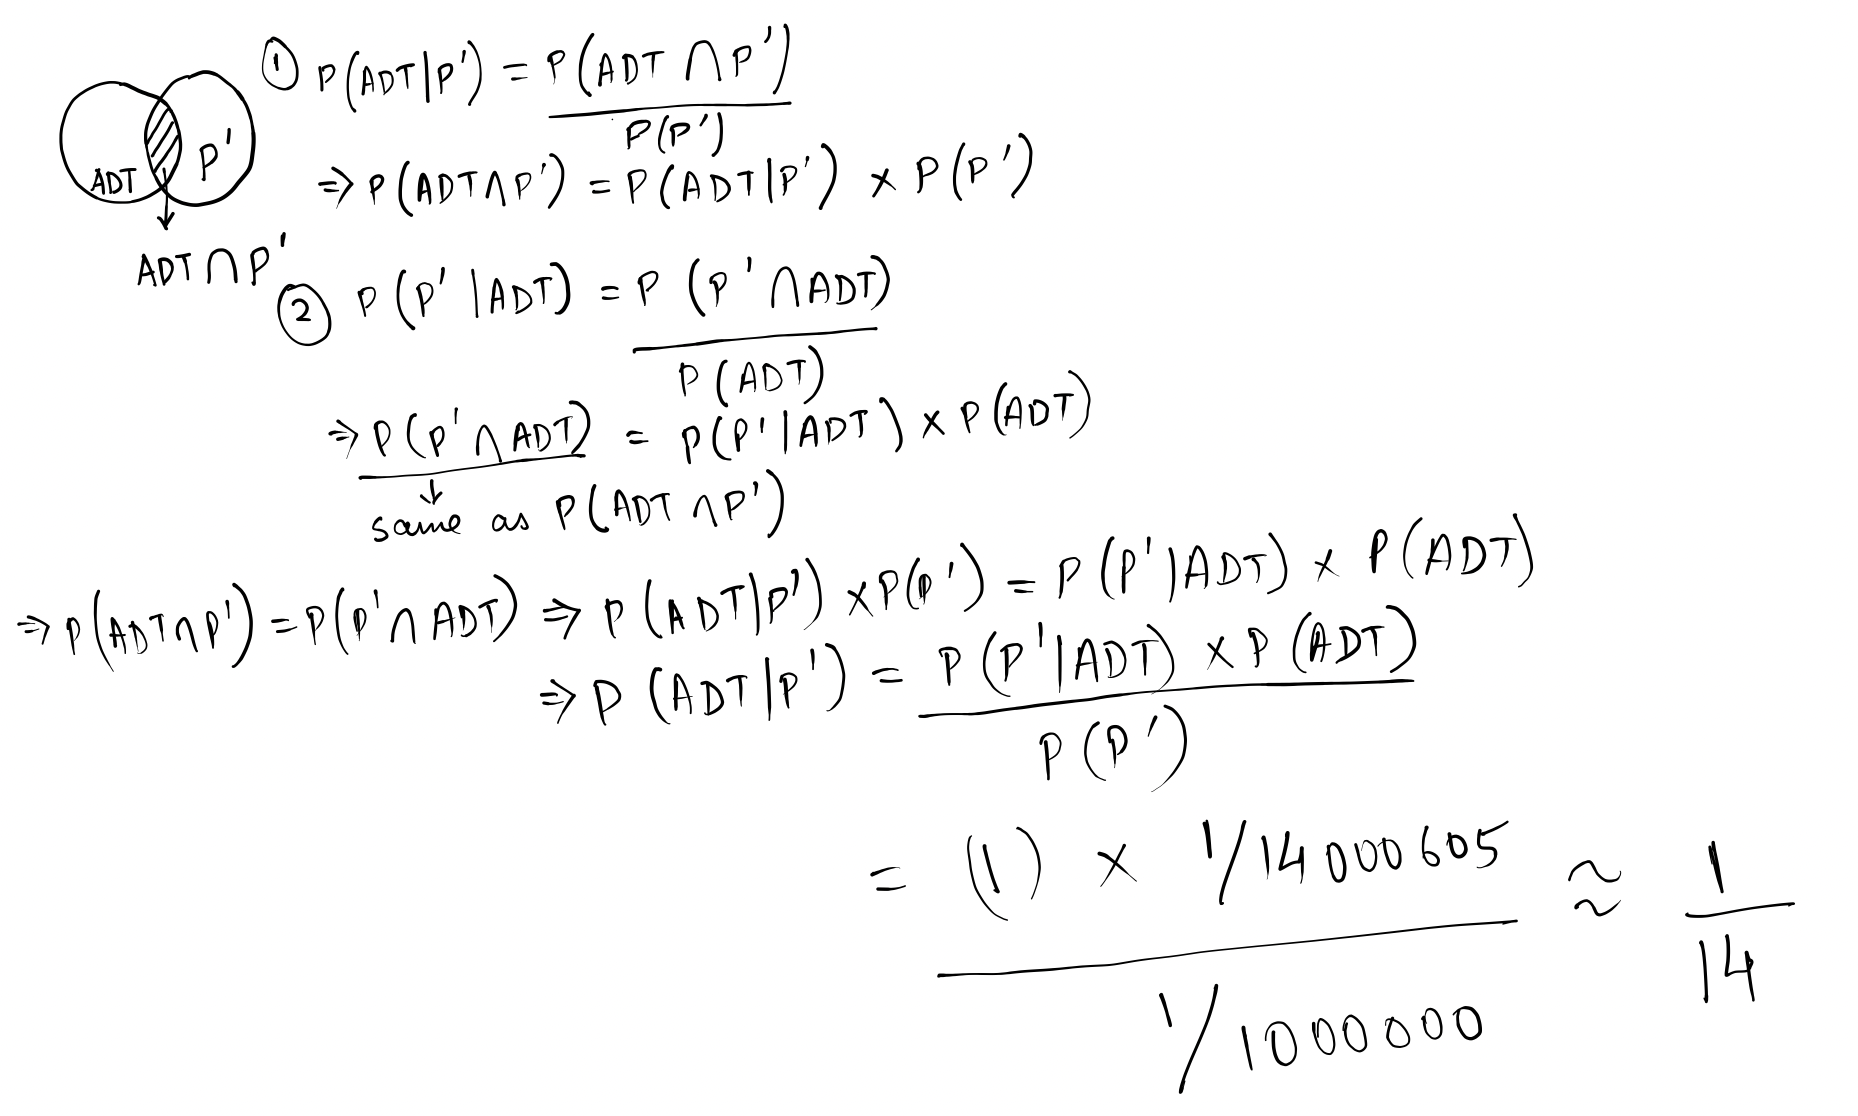 ① P(ADT|P') = P(ADT ∩ P')
P(P')
⇒ P(ADT∩P') = P(ADT|P') × P(P')
ADT P'
ADT ∩ P'
② P(P'|ADT) = P(P' ∩ ADT)
P(ADT)
⇒ P(P' ∩ ADT) = P(P'|ADT) × P(ADT)
↓
same as P(ADT ∩ P')
⇒ P(ADT∩P') = P(P'∩ ADT) ⇒ P(ADT|P') × P(P') = P(P'|ADT) × P(ADT)
⇒ P(ADT|P') = P(P'|ADT) × P(ADT)
P(P')
= (1) × 1/14000605 ≈ 1
14
1/1000000